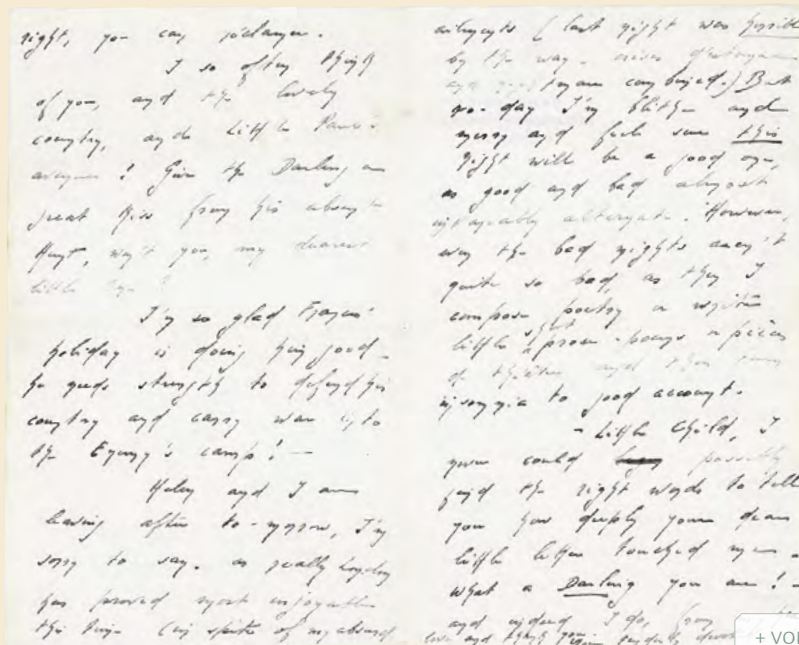 right, you can
I so often think
of you, and the lovely
country, and Little
! Give the Darling a
great kiss from his absent
Aunt, won't you, my dearest
little
I'm so glad
holiday is doing him good
he needs strength to defend his
country and carry war into
the Enemy's camp! —
Helen and I are
leaving after to-morrow, I'm
sorry to say. as really London
has proved most enjoyable
this time (in spite of my absurd
ailments (last night was horrible
by the way.
combined.) But
to-day I'm blithe and
merry and feel sure this
night will be a good one,
as good and bad almost
invariably alternate. However,
even the bad nights aren't
quite so bad, as then I
compose poetry or write
little short prose-poems or pieces
and turn
insomnia to good account.
- Little Child, I
never could possibly
find the right words to tell
you how deeply your dear
little letter touched me —
what a Darling you are! -
and indeed I do, from
love and thank you
+ VOI